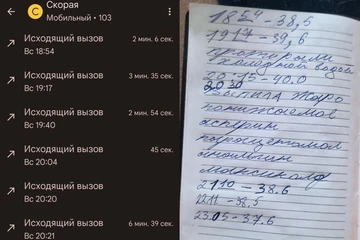 Скорая
Мобильный • 103
Исходящий вызов
2 мин. 6 сек.
Вс 18:54
Исходящий вызов
3 мин. 35 сек.
Вс 19:17
Исходящий вызов
2 мин. 54 сек.
Вс 19:40
Исходящий вызов
45 сек.
Вс 20:04
Исходящий вызов
Вс 20:20
Исходящий вызов
6 мин. 39 сек.
Вс 20:21
18 54 - 38,5
19 17 - 39,6
водой
20-15 - 40.0
20 30
выпила жаро
понижающее
аспирин
парацетамол
21 10 - 38.6
22 11 - 38,5
23.05 - 37.6